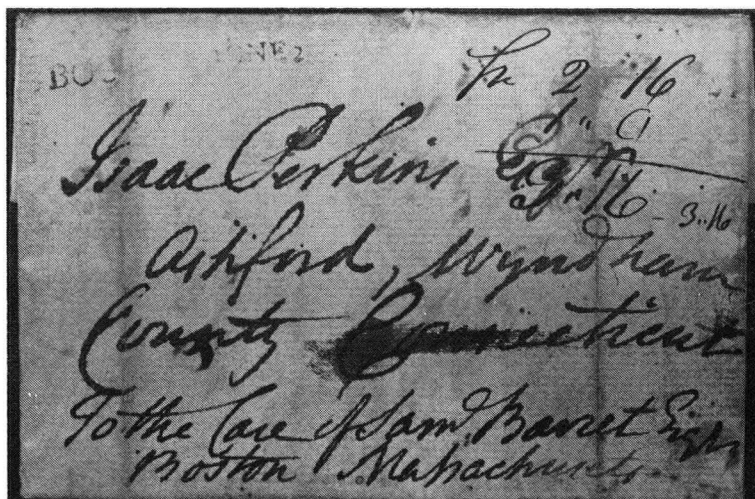 BOS
2 16
Isaac Perkins
16 3..16
Ashford, Wyndham
County Connecticut
To the Care of Sam.l Barret Esq.r
Boston Massachusets